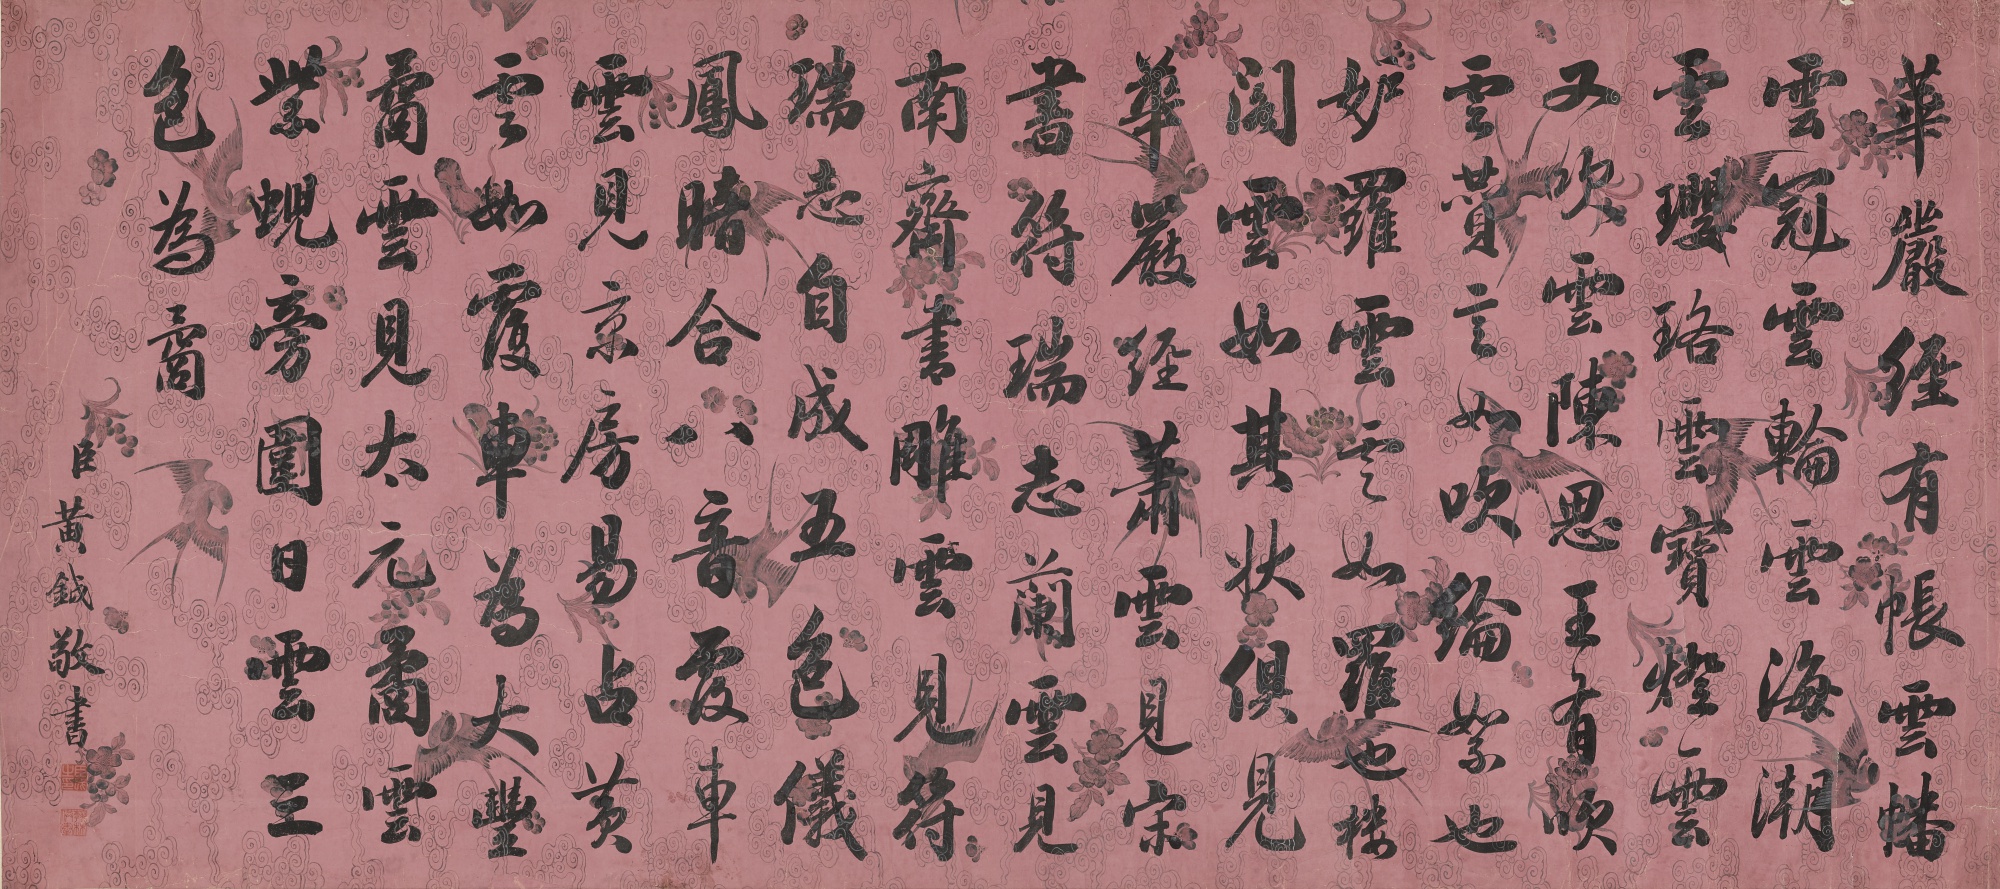 華嚴經有帳雲幡
雲冠雲輪雲海潮
雲瓔珞雲寶燈雲
又吹雲陳思王有頌
雲贊言如吹綸如絮也
妒羅雲雲如羅也楼
閣雲如其狀俱見
華嚴經蕭雲見宋
書符瑞志蘭雲見
南齊書雕雲見符
瑞志自成五色儀
鳳暗合八音霞車
雲見京房易占黃
雲如覆車為大豐
矞雲見太元矞雲
紫蜺旁圍日雲三
色為矞
臣黃鉞敬書